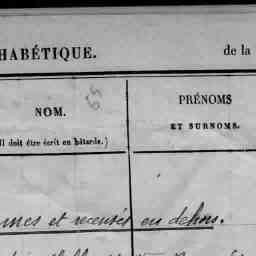 HABÉTIQUE. de la
NOM. 65 PRÉNOMS
ET SURNOMS.
ll doit être écrit en bâtarde.)
et recensés en dehors.